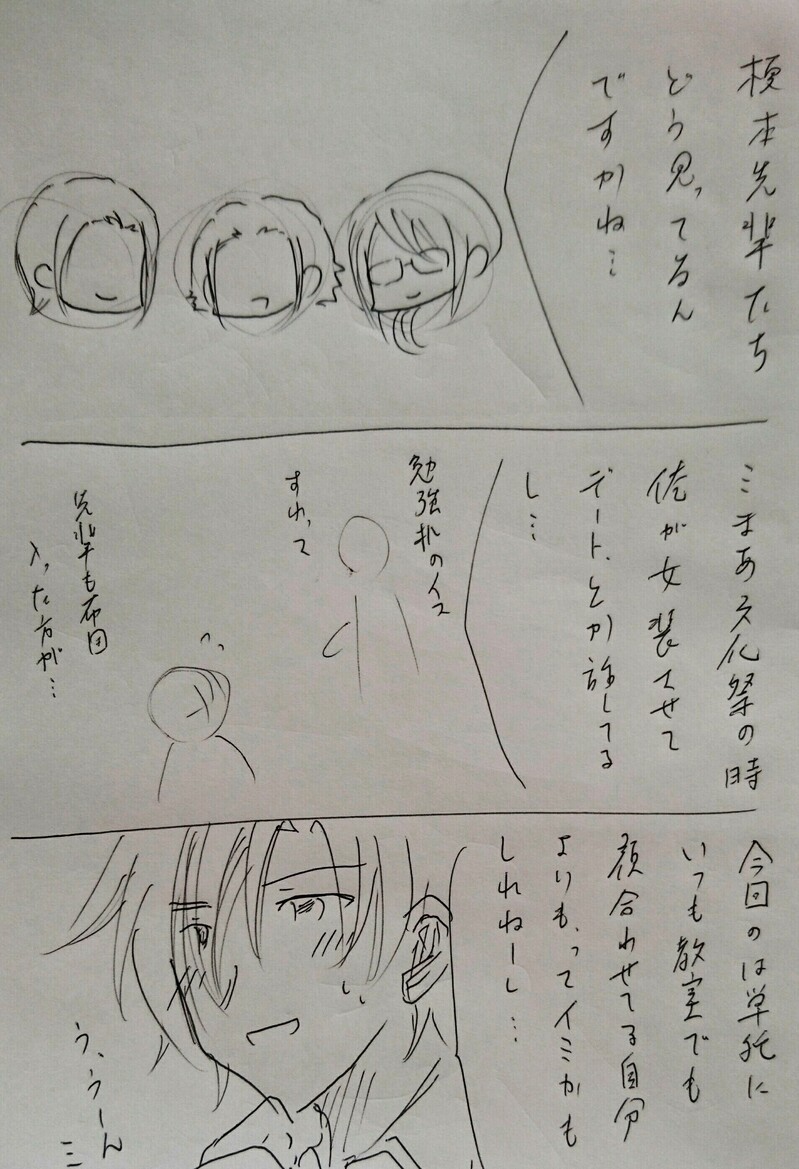 榎本先輩たち
どう思ってるん
ですかね…
…まあ文化祭の時
俺が女装させて
デートとか許してる
し…
勉強机のイス
すわって
先輩も布団
入った方が…
今回のは単純に
いつも教室でも
顔合わせてる自分
よりも、ってイミかも
しれねーし…
う、うーん
…